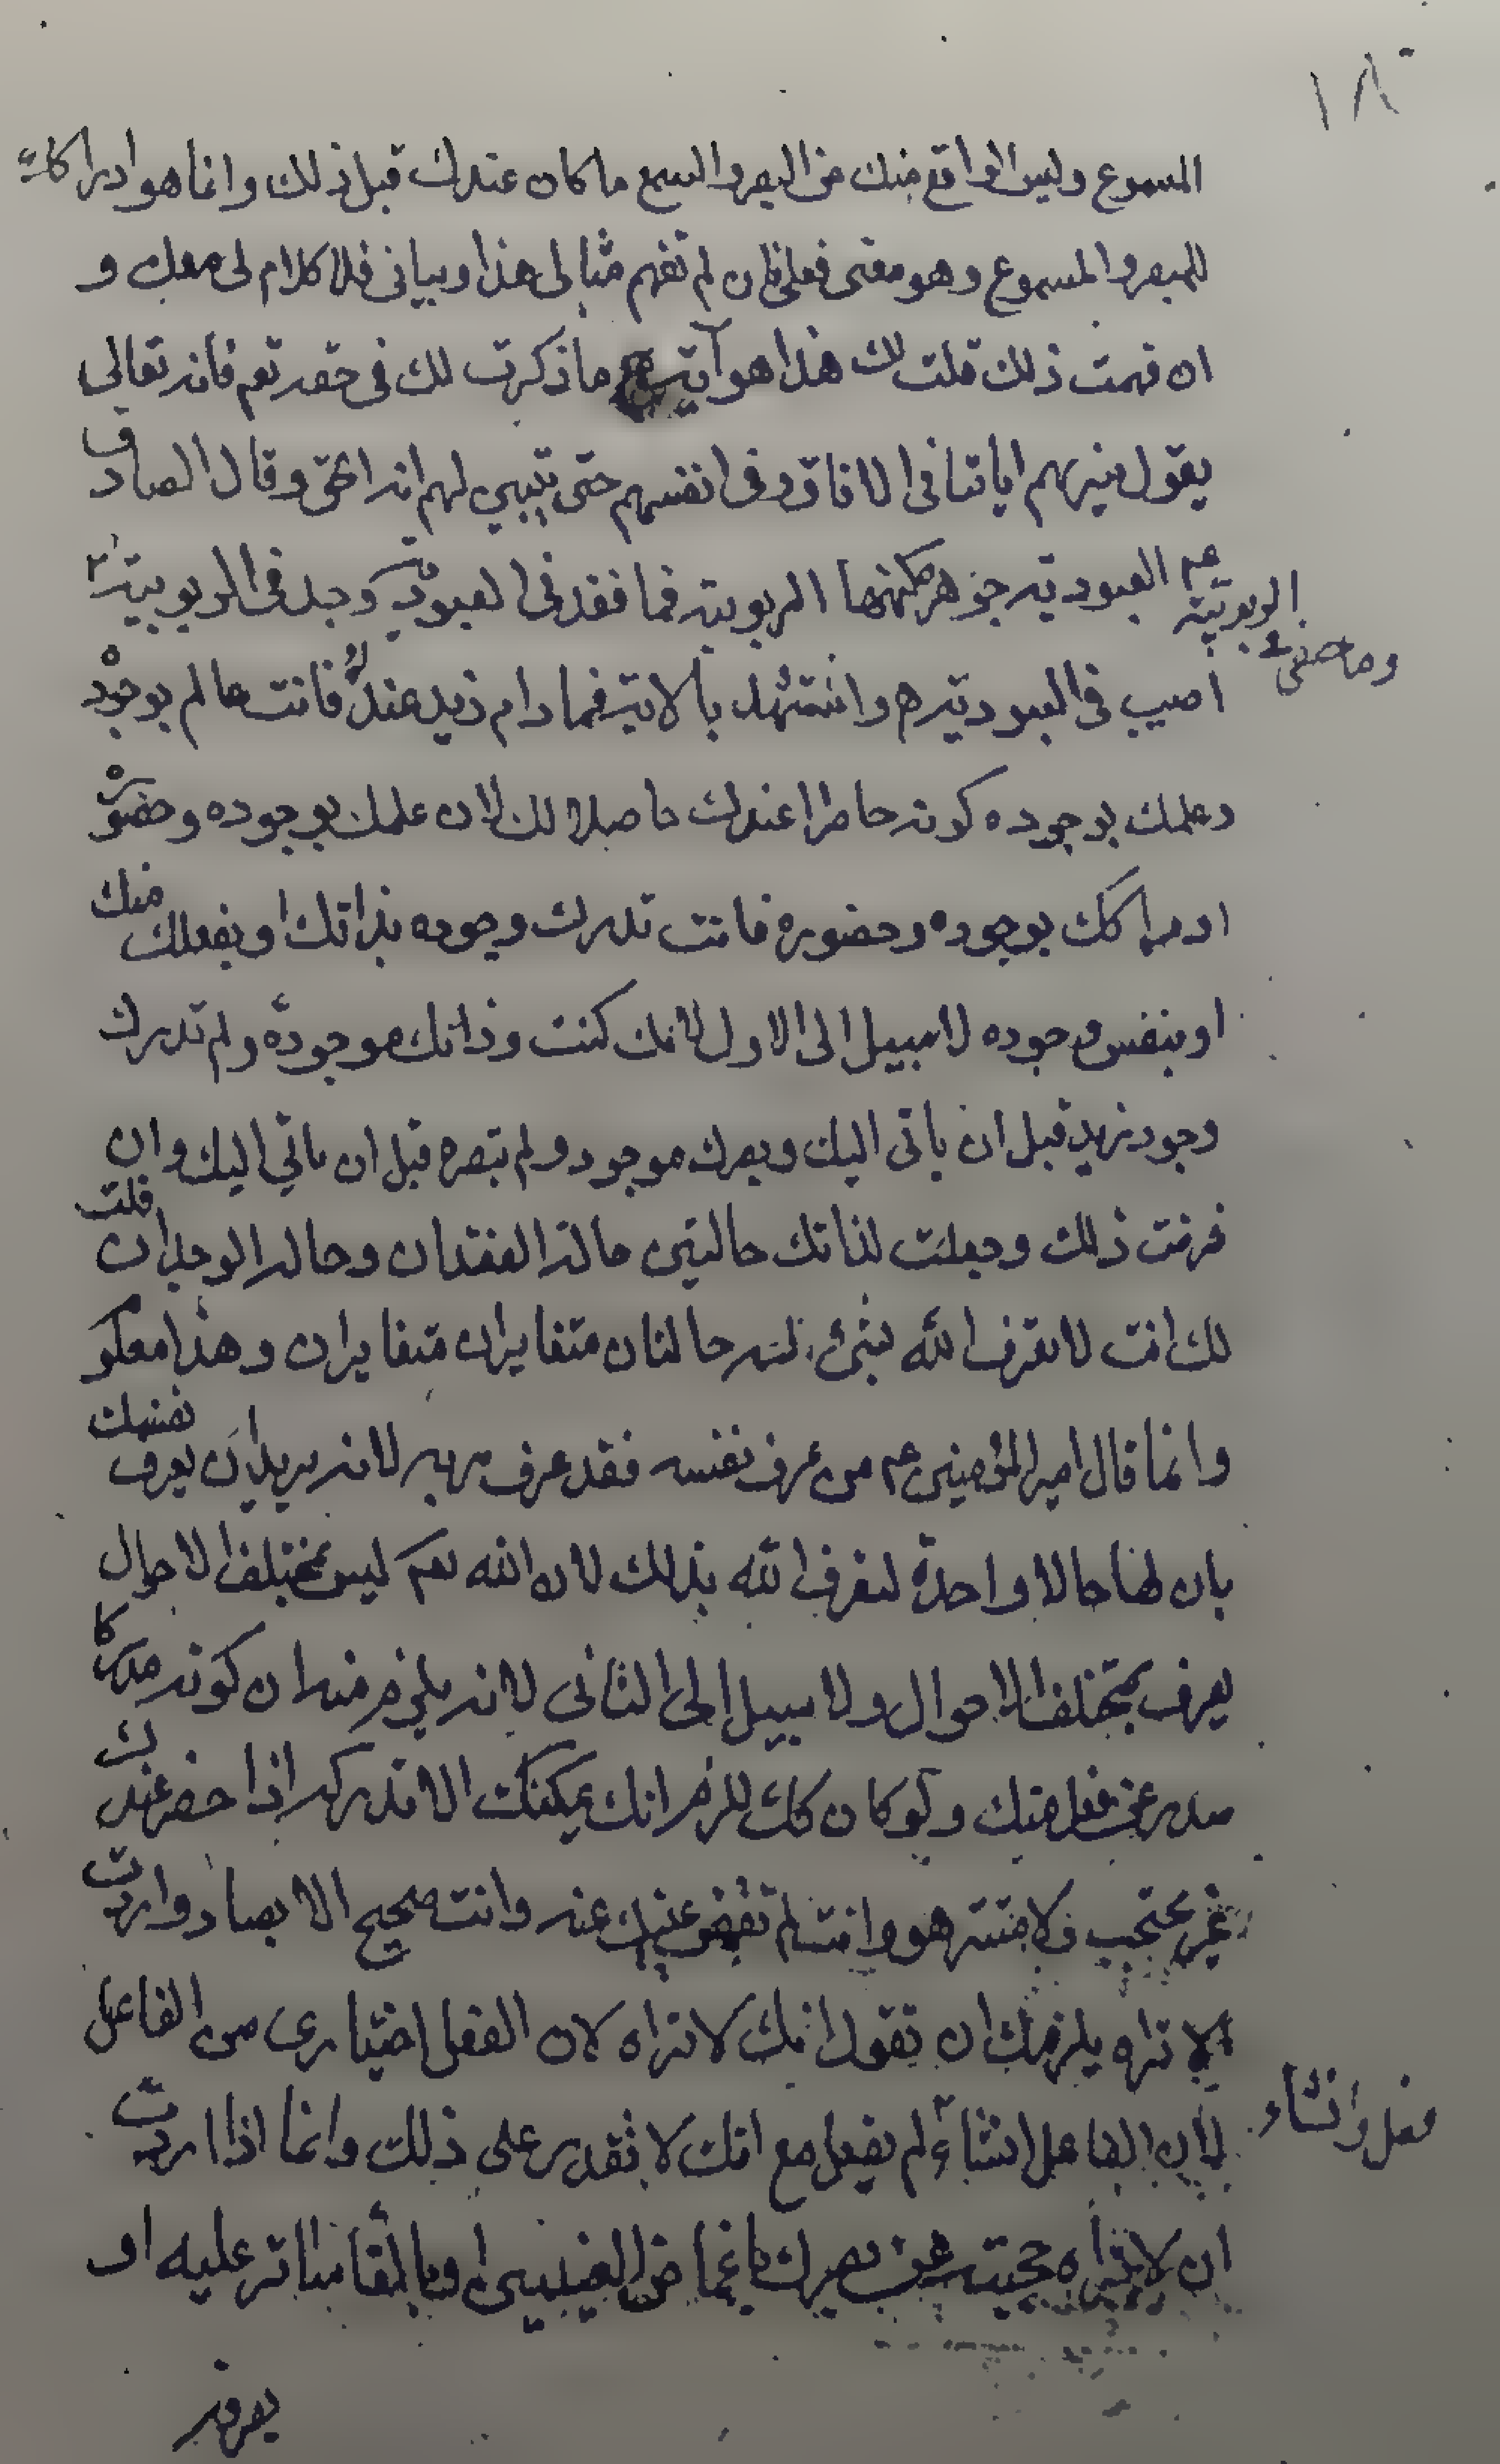 ١٨٠
المسموع وليس الواقع منك من البصر والسمع ما كان عندك قبل ذلك وانما هو ادراك
للمبصر والمسموع وهو معنى فعلى فان لم تفهم مثالى هذا وبيانى فلا كلام لى معك و
ان فهمت ذلك قلت لك هذا هو آية ما ذكرت لك فى حقه تعم فانه تعالى
يقول سنريهم اياتنا فى الافاق وفى انفسهم حتى يتبين لهم انه الحق وقال الصادق
عم العبودية جوهر كنهها الربوبية فما فقد فى العبودية وجد فى الربوبية
وما خفى فى الربوبية
اصيب فى العبودية ه واستشهد بالاية فما دام زيد عندك فانت عالم بوجوده
وعلمك بوجوده كونه حاضرا عندك حاصلا لك لان علمك بوجوده وحضوره
ادراكك بوجوده وحضوره فانت تدرك وجوده بذاتك او بفعلك منك
او بنفس وجوده لا سبيل الى الاول لانك كنت وذاتك موجودة ولم تدرك
وجود زيد قبل ان ياتى اليك وبصرك موجود ولم تبصره قبل ان ياتي اليك وان
فرضت ذلك وجعلت لذاتك حالتين حالة الفقدان وحالة الوجدان قلت
لك انت لا تعرف الله بشئ له حالتان متغايران متغايران وهذا معلو
وانما قال امير المؤمنين عم من عرف نفسه فقد عرف ربه لانه يريد ان يعرف نفسك
بان لها حالا واحدة لتعرف الله بذلك لان الله تعم ليس بمختلف الاحوال
يعرف بمختلف الاحوال ولا سبيل الى الثانى لانه يلزم منه ان كونه مدركا
صدر عن فعل منك ولو كان كك للزم انك يمكنك الا تدركه اذا حضر عندك
غير محتجب ولا مستتر هو وانت لم تغمض عينيك عنه وانت صحيح الابصار واردت
الا تراه يلزمك ان تقول انك لا تراه لان الفعل اختيارى من الفاعل
لان الفاعل ان شاء لم يفعل مع انك لا تقدر على ذلك وانما اذا اردت
فعل وان شاء
ان لا تراه حجبته عن بصرك باغماض العينين او بالقاء ساتر عليه او